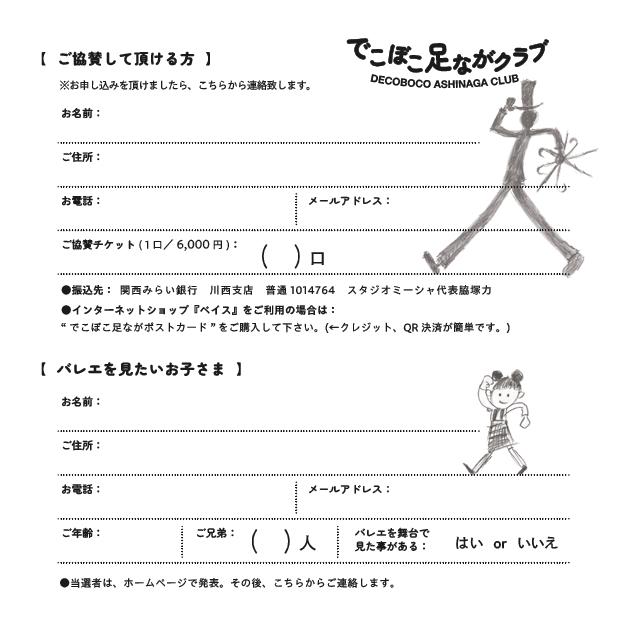 でこぼこ足ながクラブ
DECOBOCO ASHINAGA CLUB
【 ご協賛して頂ける方 】
※お申し込みを頂けましたら、こちらから連絡致します。
お名前：
ご住所：
お電話： メールアドレス：
ご協賛チケット(1口／6,000円)： ( )口
●振込先： 関西みらい銀行 川西支店 普通1014764 スタジオミーシャ代表脇塚力
●インターネットショップ『ベイス』をご利用の場合は：
“でこぼこ足ながポストカード”をご購入して下さい。(←クレジット、QR決済が簡単です。)
【 バレエを見たいお子さま 】
お名前：
ご住所：
お電話： メールアドレス：
ご年齢： ご兄弟： ( )人 バレエを舞台で
見た事がある： はい or いいえ
●当選者は、ホームページで発表。その後、こちらからご連絡します。